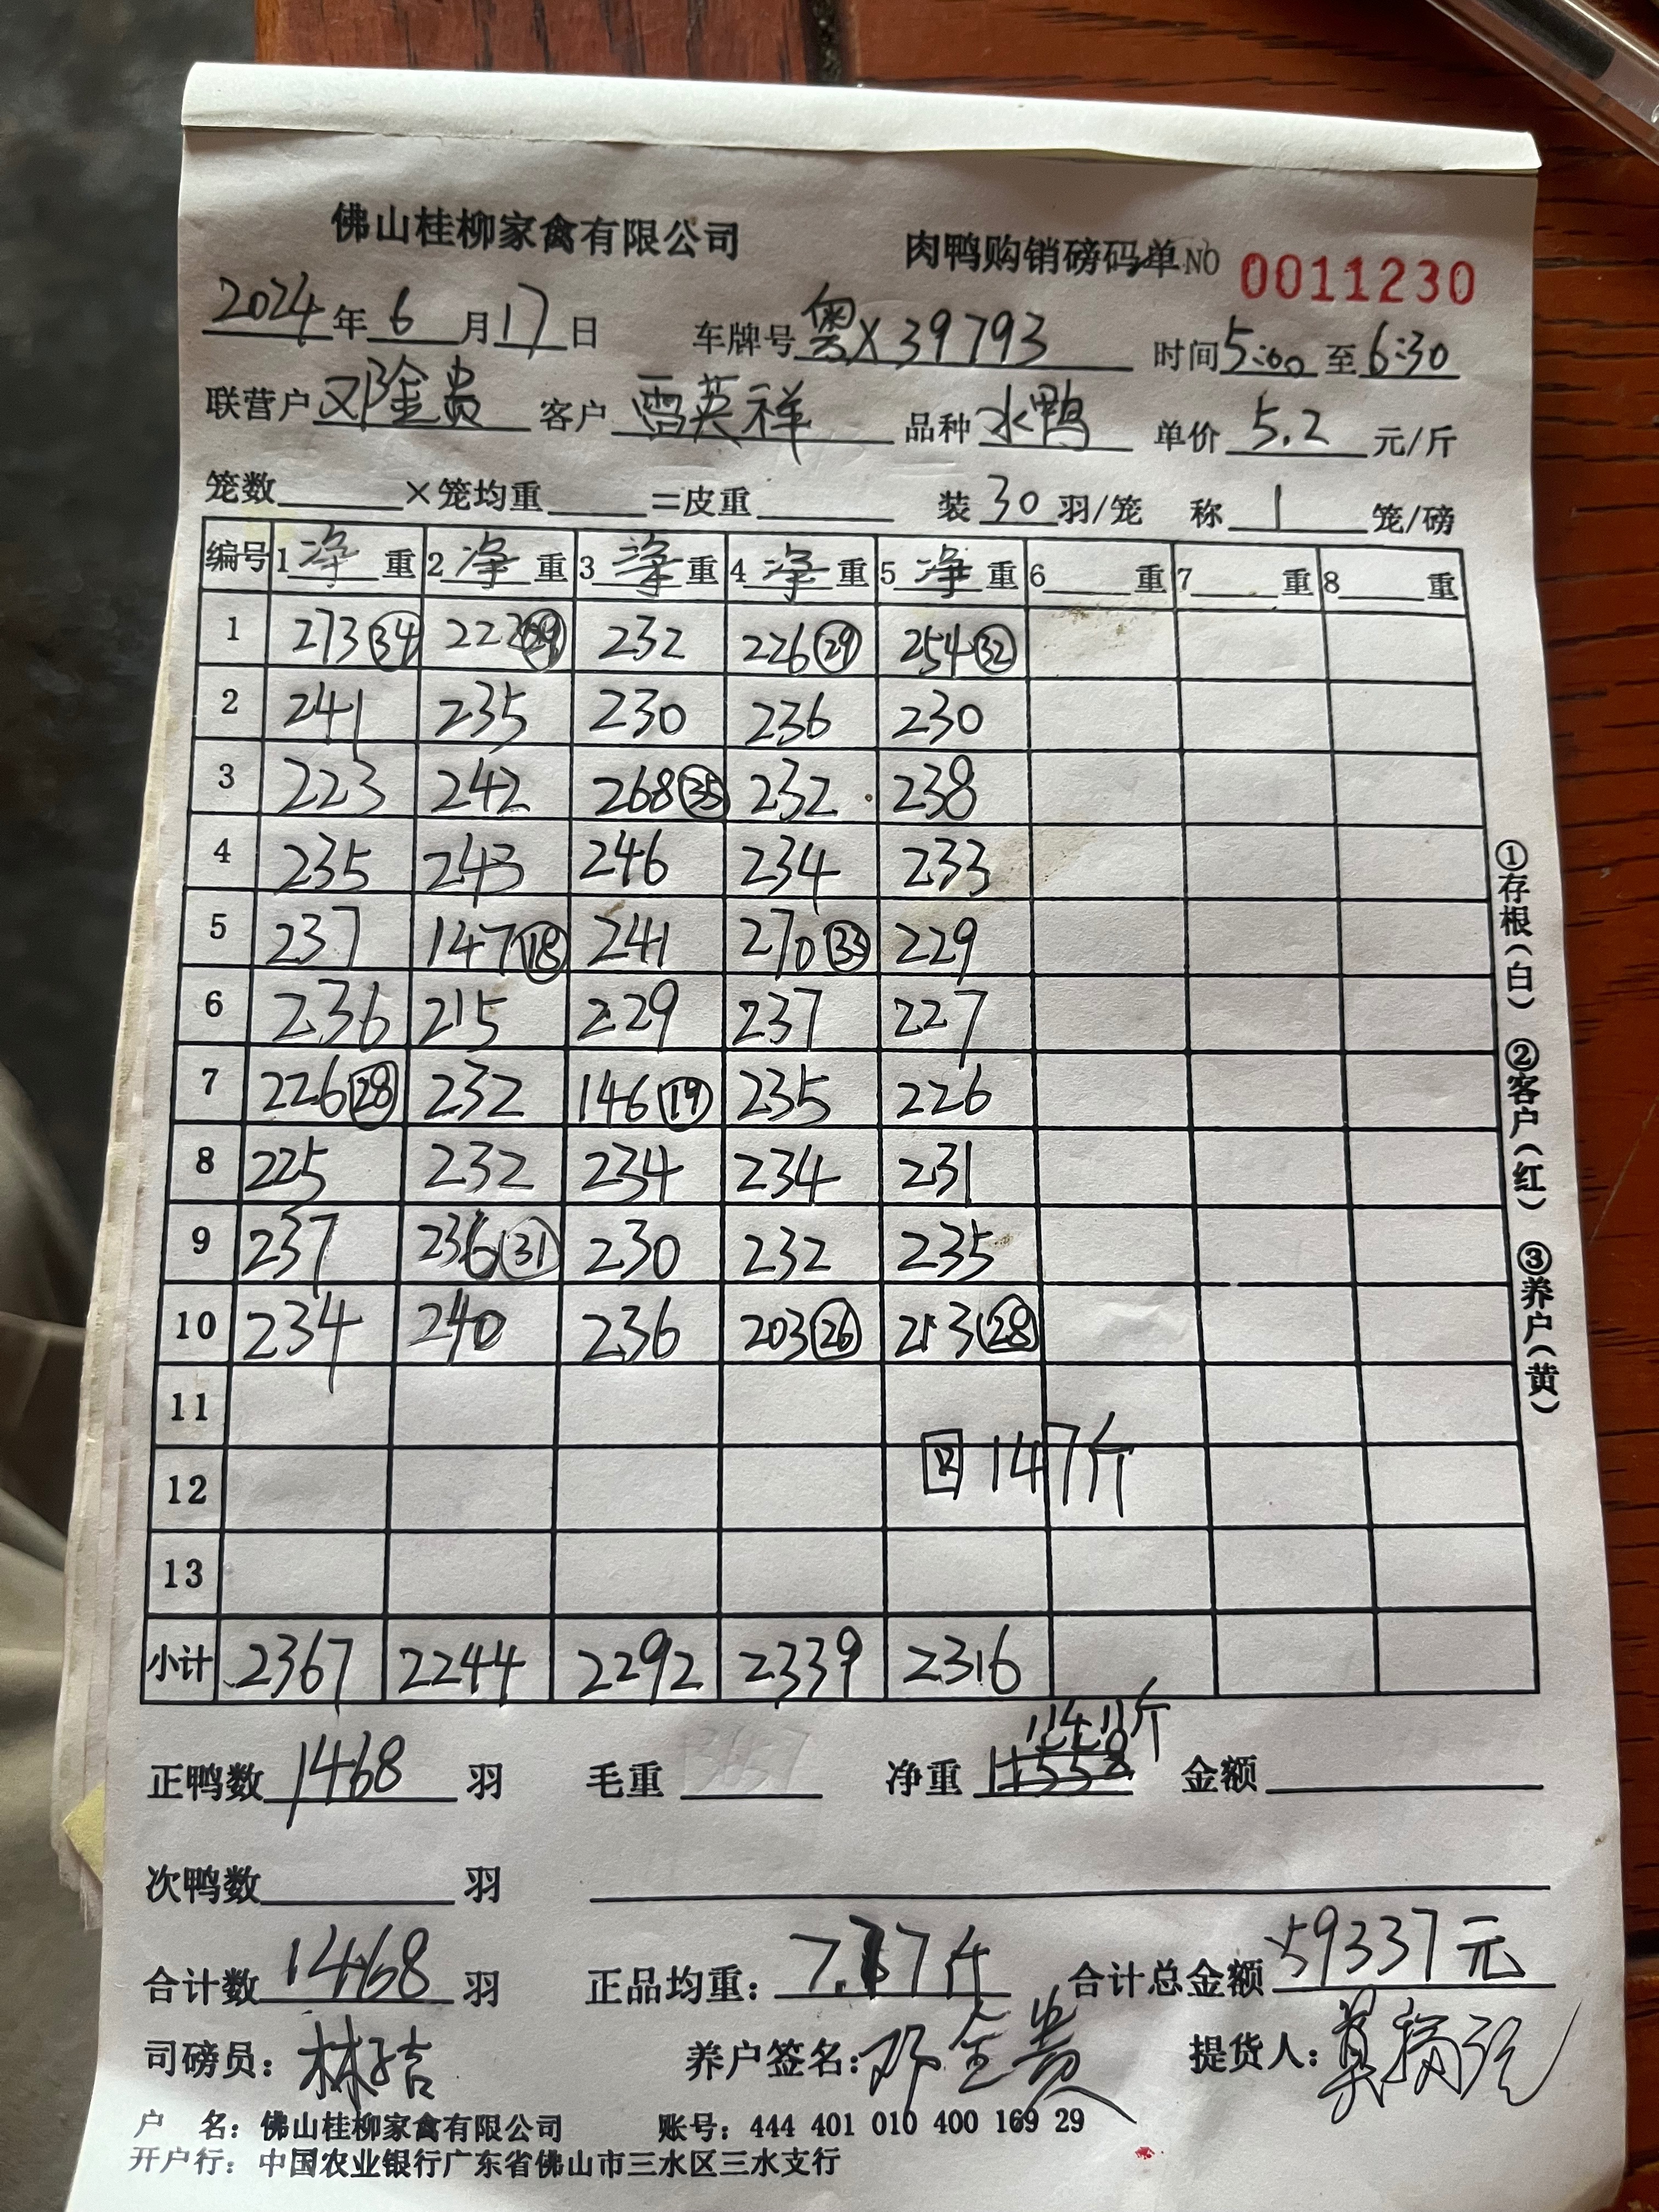 佛山桂柳家禽有限公司 肉鸭购销磅码单 NO 0011230
2024年6月17日 车牌号 粤X39793 时间5:00至6:30
联营户 邓金贵 客户 雷英祥 品种 水鸭 单价 5.2 元/斤
笼数 ×笼均重 =皮重 装30羽/笼 称1笼/磅
编号 1净重 2净重 3净重 4净重 5净重 6 重 7 重 8 重
1 273㉞ 222㉙ 232 226㉙ 254㉜
2 241 235 230 236 230
3 223 242 268㉟ 232 238
4 235 243 246 234 233
5 237 147⑱ 241 270㉝ 229
6 236 215 229 237 227
7 226㉘ 232 146⑲ 235 226
8 225 232 234 234 231
9 237 236㉛ 230 232 235
10 234 240 236 203㉖ 213㉘
11
12 回147斤
13
小计 2367 2244 2292 2339 2316
11411斤
正鸭数 1468 羽 毛重 净重 11558 金额
次鸭数 羽
合计数 1468 羽 正品均重: 7.77斤 合计总金额 59337元
司磅员: 林 养户签名: 邓金贵 提货人:
户 名: 佛山桂柳家禽有限公司 账号: 444 401 010 400 169 29
开户行: 中国农业银行广东省佛山市三水区三水支行
①存根(白) ②客户(红) ③养户(黄)